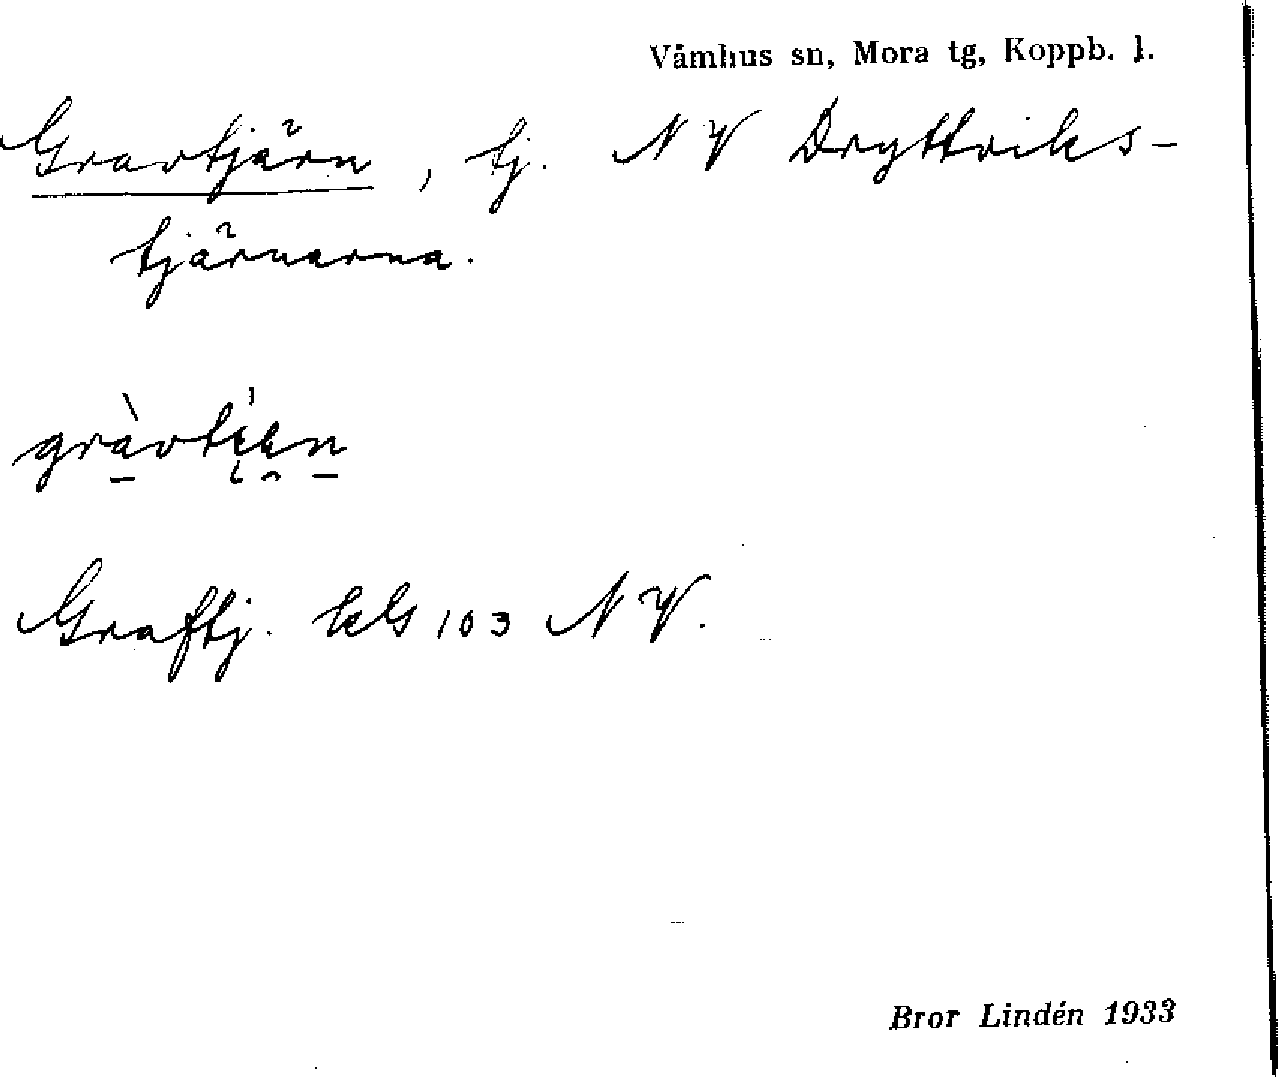 Våmhus sn, Mora tg, Koppb. l.
Gravtjärn, tj. NV Dryttriks-
tjärnarna.
Graftj. kG 103 NV.
Bror Lindén 1933